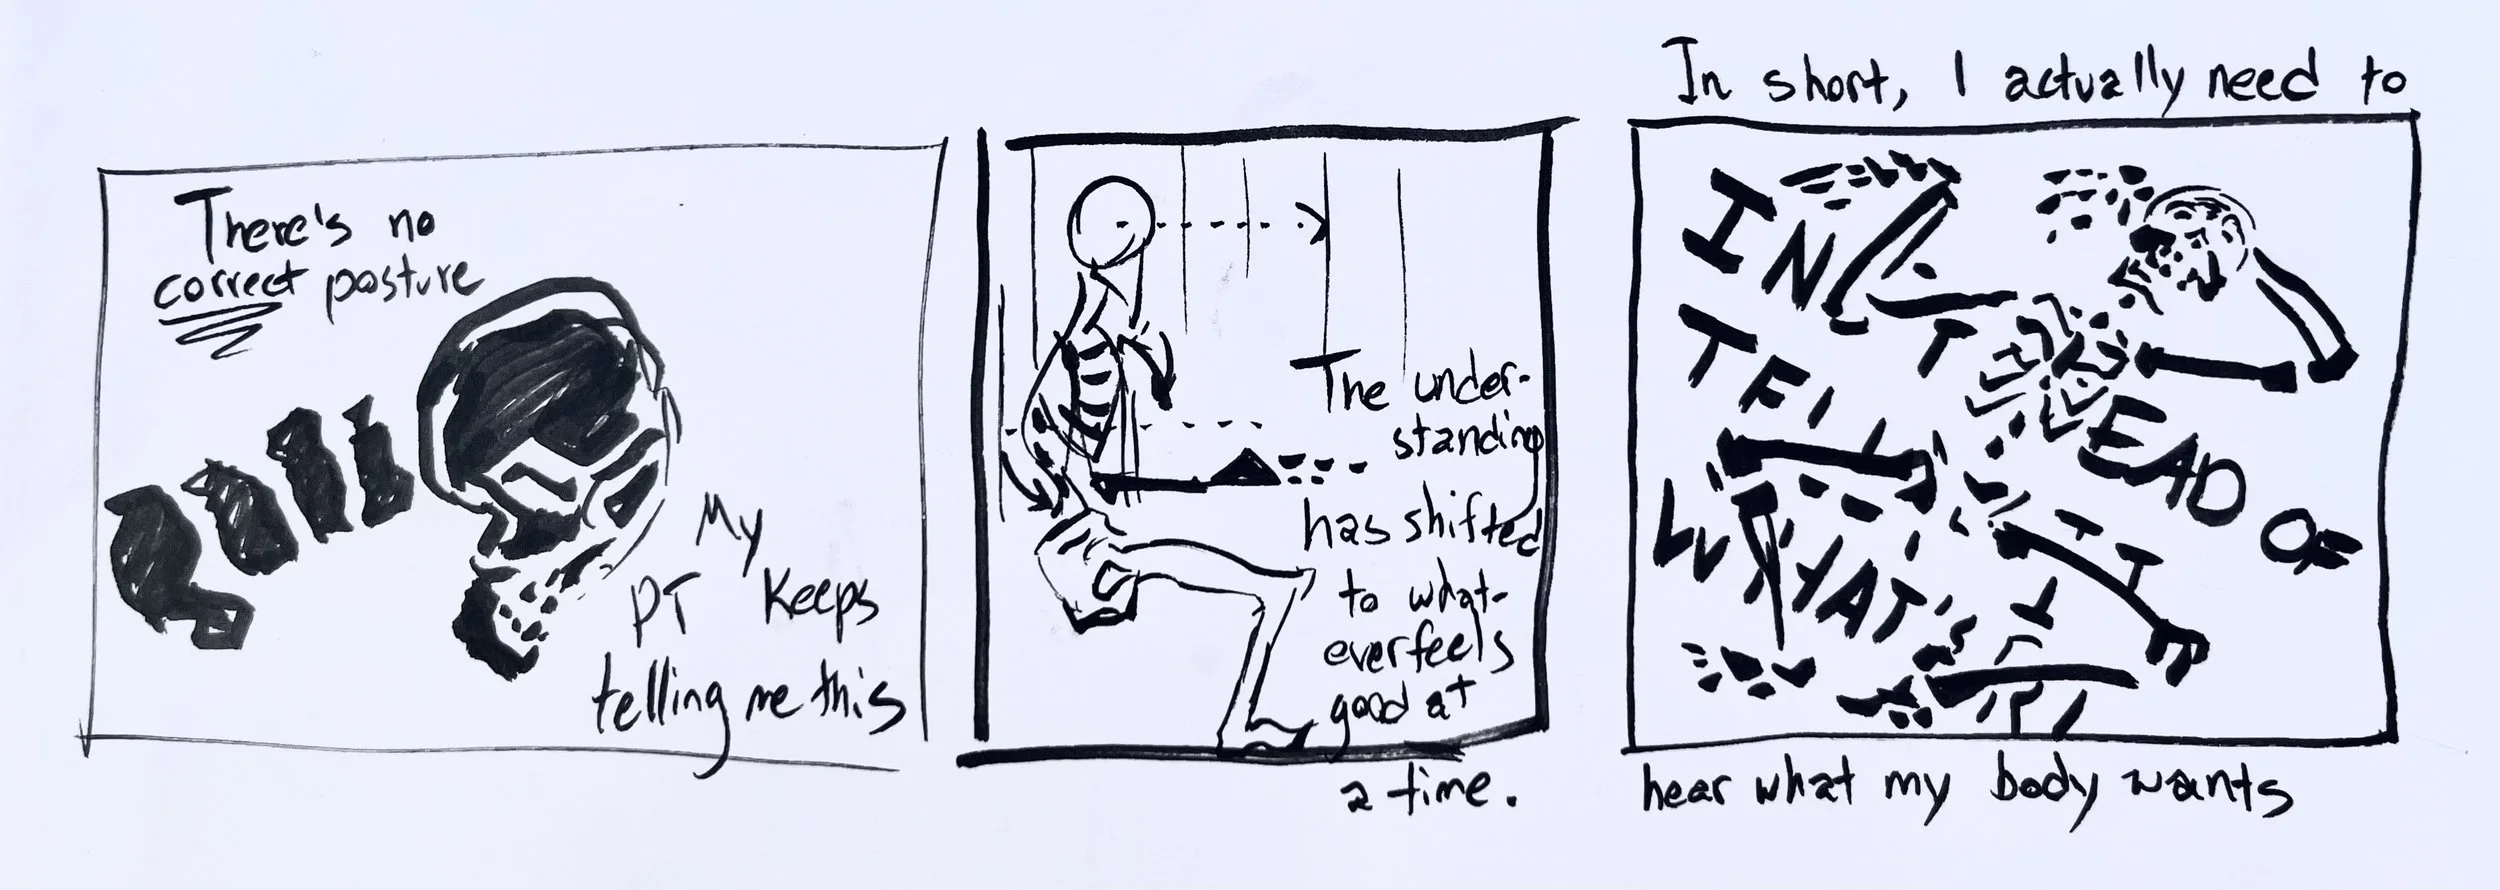 There's no
correct posture
My
PT keeps
telling me this
The under-
standing
has shifted
to what-
ever feels
good at
a time.
In short, I actually need to
INSTEAD OF
TELLING IT
WHAT'S
hear what my body wants